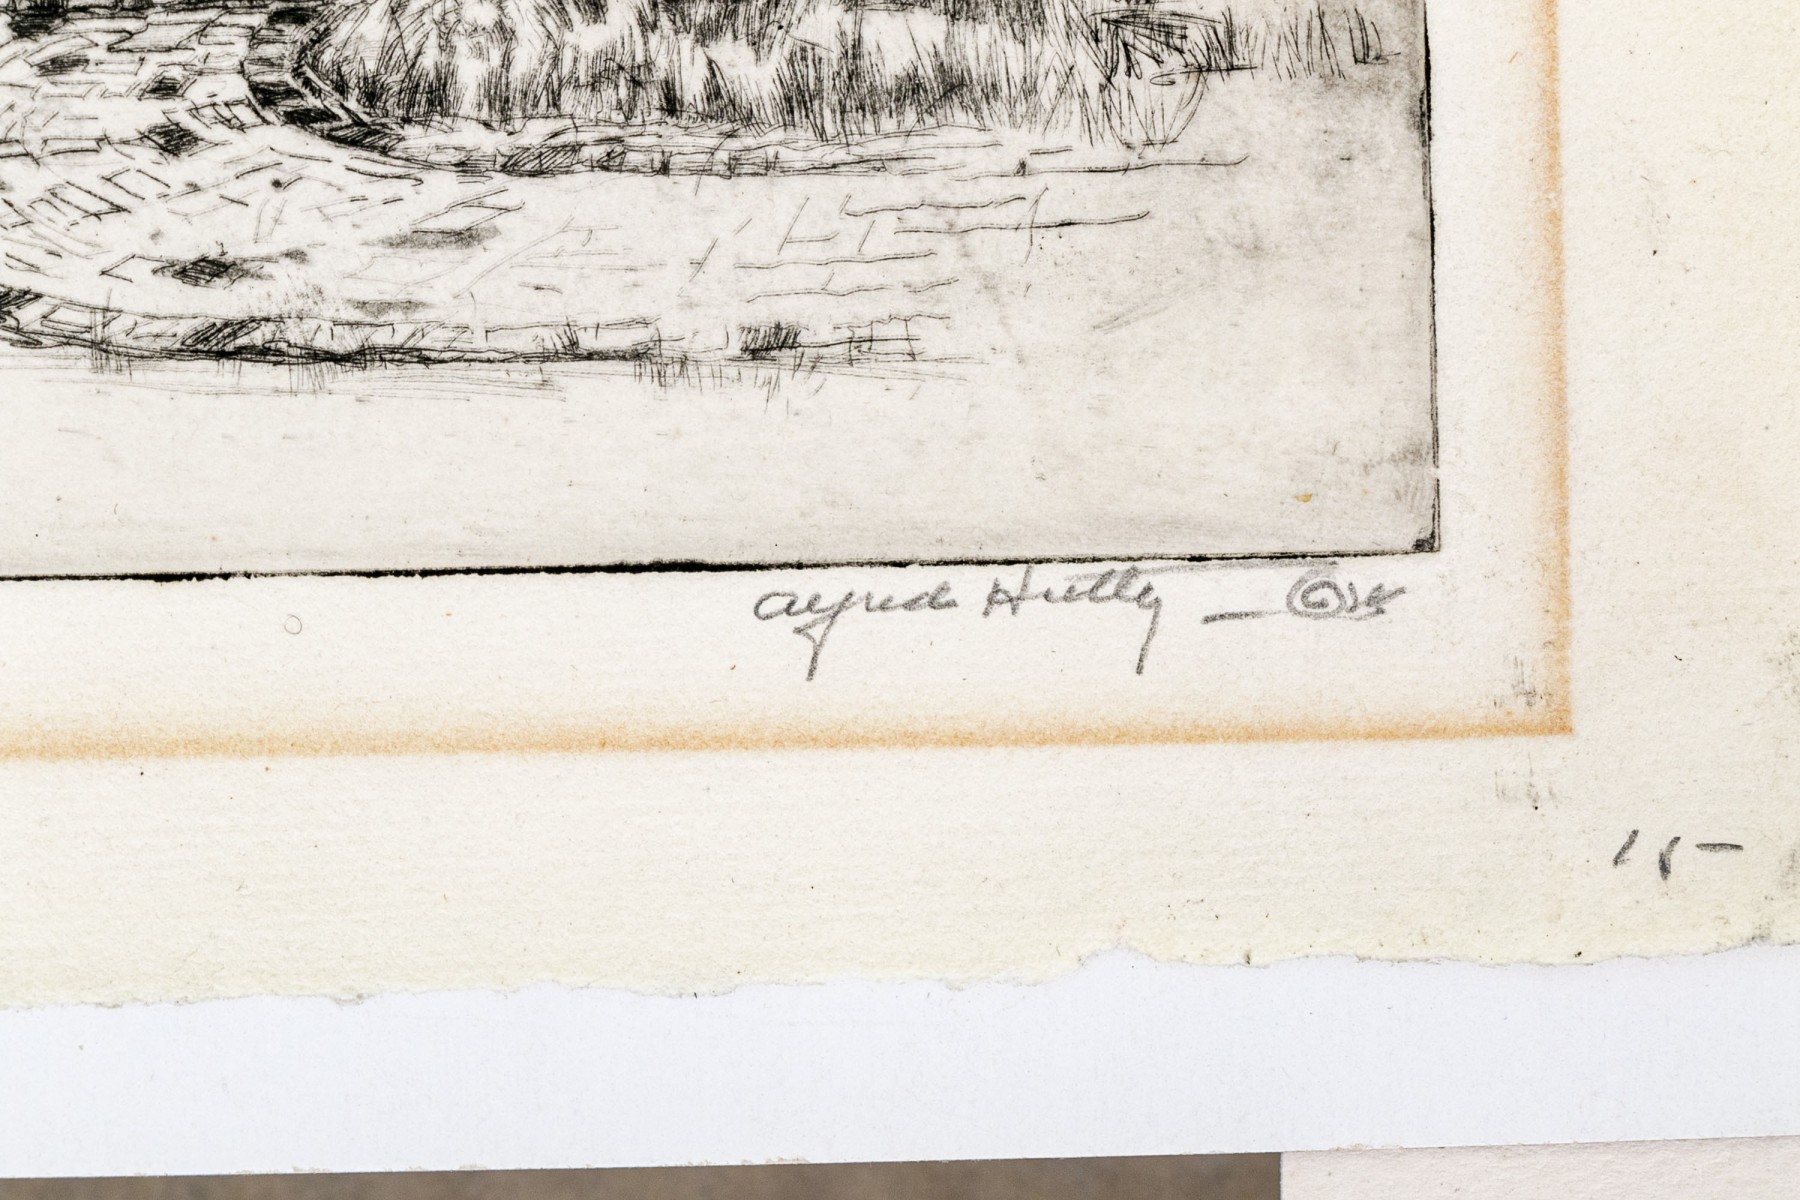 Alfred Hutty
15-